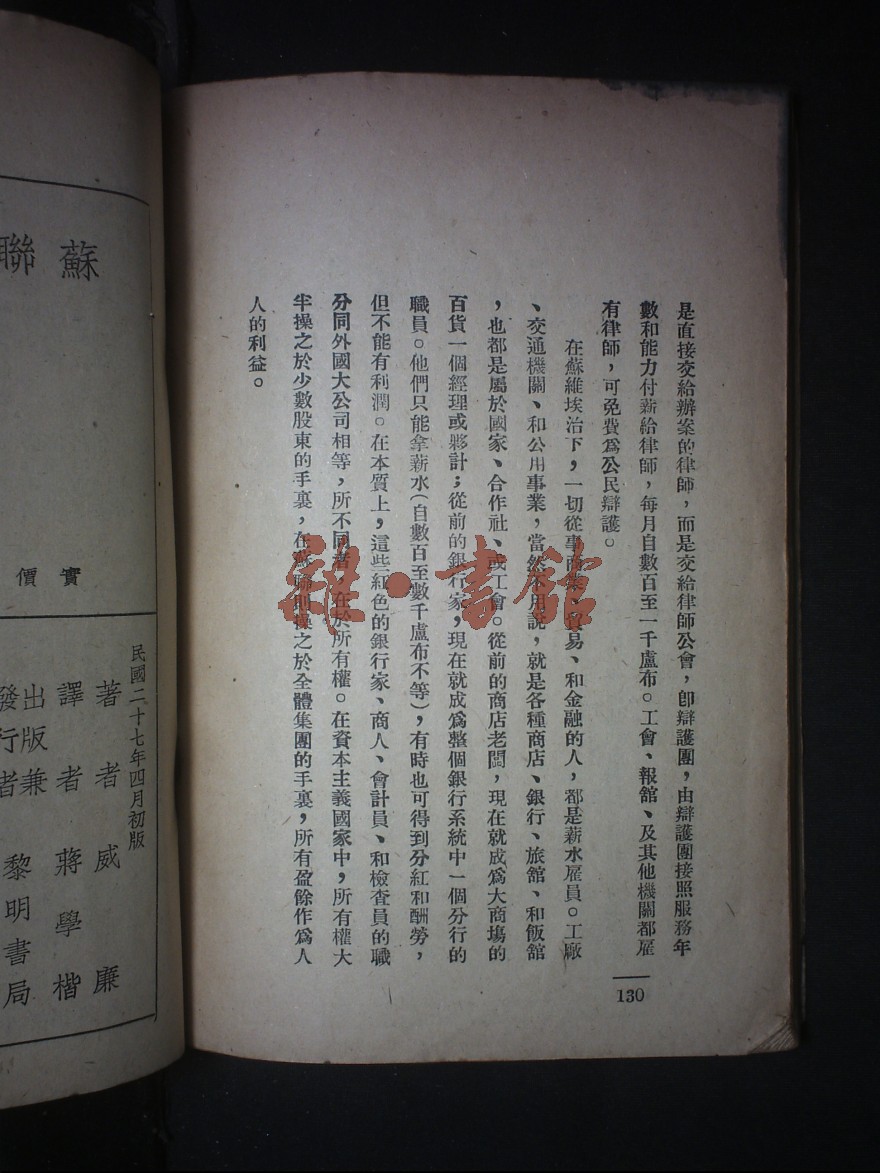 是直接交給辦案的律師，而是交給律師公會，卽辯護團，由辯護團接照服務年
數和能力付薪給律師，每月自數百至一千盧布。工會、報舘、及其他機關都雇
有律師，可免費爲公民辯護。
在蘇維埃治下，一切從事商業、貿易、和金融的人，都是薪水雇員。工廠
、交通機關、和公用事業，當然不用說，就是各種商店、銀行、旅舘、和飯舘
，也都是屬於國家、合作社、或工會。從前的商店老闆，現在就成爲大商塲的
百貨一個經理或夥計；從前的銀行家，現在就成爲整個銀行系統中一個分行的
職員。他們只能拿薪水（自數百至數千盧布不等），有時也可得到分紅和酬勞，
但不能有利潤。在本質上，這些紅色的銀行家、商人、會計員、和檢查員的職
分同外國大公司相等，所不同者，在於所有權。在資本主義國家中，所有權大
半操之於少數股東的手裏，在蘇聯則操之於全體集團的手裏，所有盈餘作爲人
人的利益。
130
雜·書舘
蘇
聯
實
價
民國二十七年四月初版
著者 威廉
譯者 蔣學楷
出版兼
發行者 黎明書局